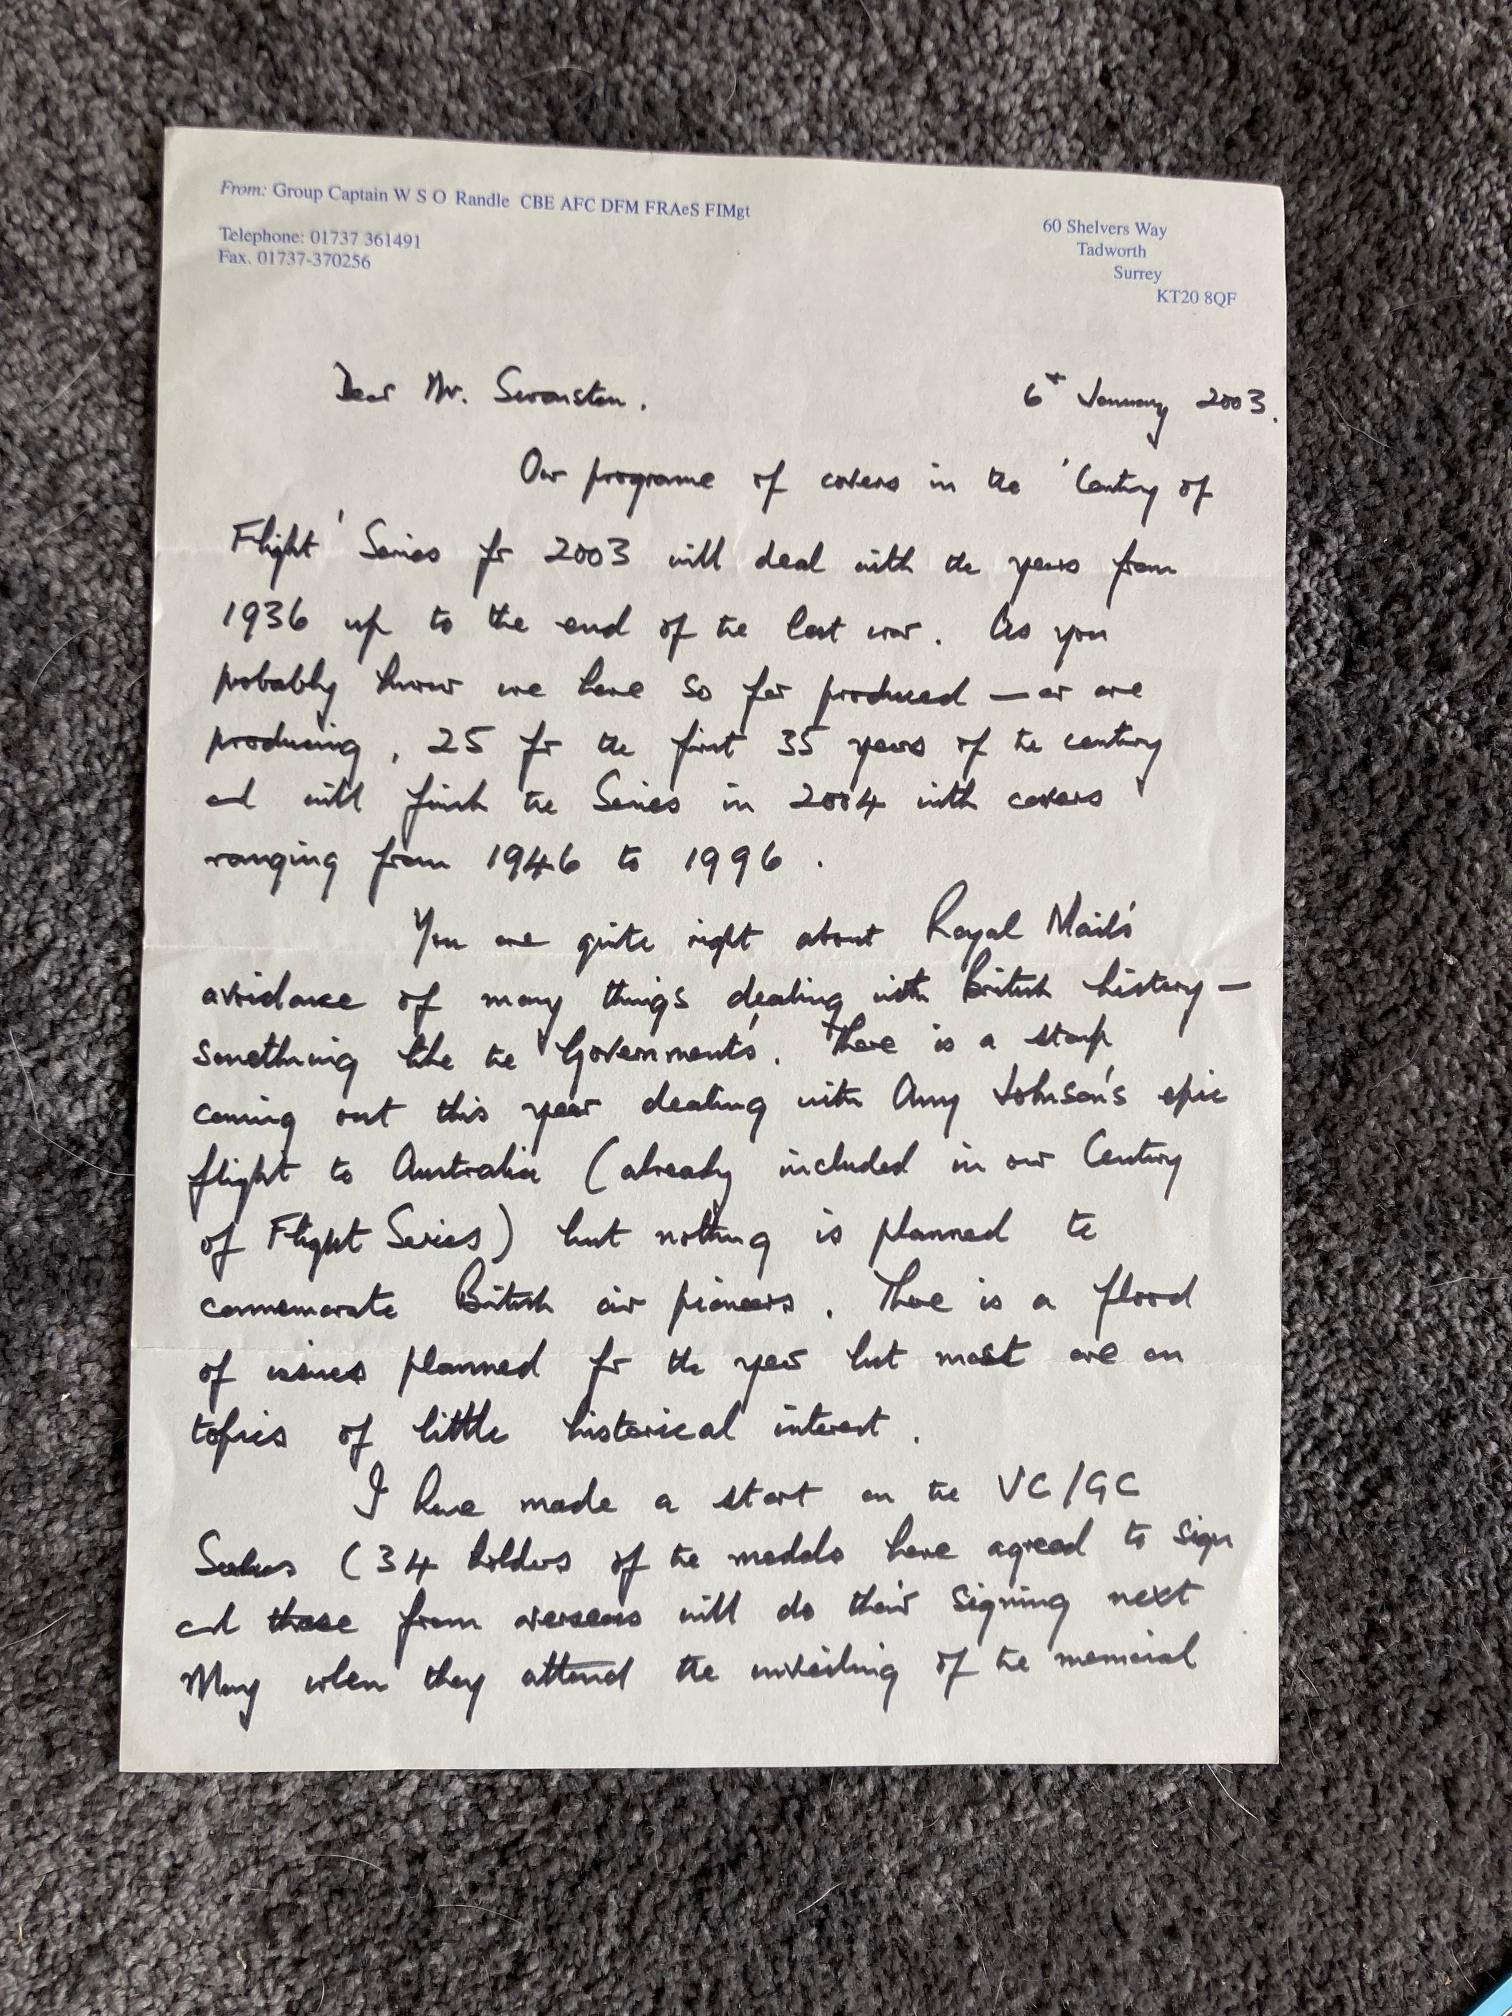 From: Group Captain W S O Randle CBE AFC DFM FRAeS FIMgt
Telephone: 01737 361491
Fax. 01737-370256
60 Shelvers Way
Tadworth
Surrey
KT20 8QF
Dear Mr. Swanston. 6th January 2003.
Our programe of covers in the 'Century of
Flight' Series for 2003 will deal with the years from
1936 up to the end of the last war. As you
probably know we have so far produced — or are
producing, 25 for the first 35 years of the century
and will finish the Series in 2004 with covers
ranging from 1946 to 1996.
You are quite right about Royal Mail's
avoidance of many things dealing with British history —
something like the Government's. There is a stamp
coming out this year dealing with Amy Johnson's epic
flight to Australia (already included in our Century
of Flight Series) but nothing is planned to
commemorate British air pioneers. There is a flood
of issues planned for the year but most are on
topics of little historical interest.
I have made a start on the VC/GC
(34 holders of the medals have agreed to sign
and those from overseas will do their signing next
May when they attend the unveiling of the memorial